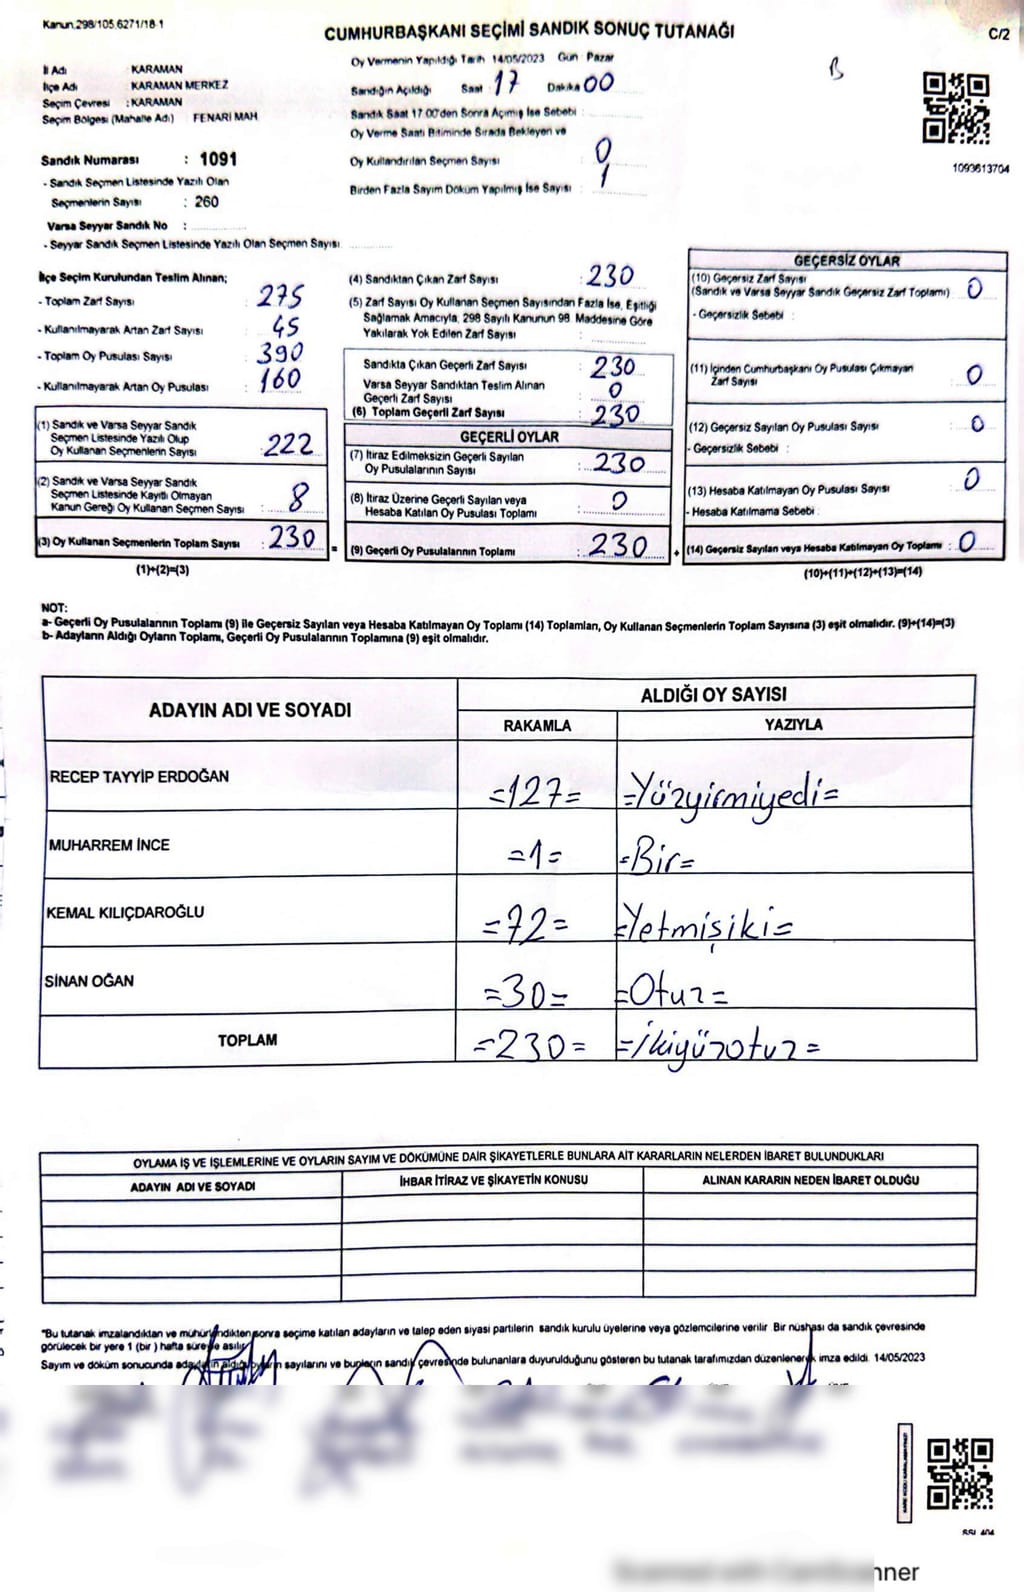 Kanun.298/105.6271/18-1
CUMHURBAŞKANI SEÇİMİ SANDIK SONUÇ TUTANAĞI
C/2
İl Adı KARAMAN
İlçe Adı KARAMAN MERKEZ
Seçim Çevresi : KARAMAN
Seçim Bölgesi (Mahalle Adı) FENARİ MAH
Oy Vermenin Yapıldığı Tarih 14/05/2023 Gün Pazar
Sandığın Açıldığı Saat 17 Dakika 00
Sandık Saat 17.00'den Sonra Açılmış İse Sebebi :
Oy Verme Saati Bitiminde Sırada Bekleyen ve
Oy Kullandırılan Seçmen Sayısı 0
Birden Fazla Sayım Döküm Yapılmış İse Sayısı : 1
B
1093613704
Sandık Numarası : 1091
- Sandık Seçmen Listesinde Yazılı Olan
Seçmenlerin Sayısı : 260
Varsa Seyyar Sandık No :
- Seyyar Sandık Seçmen Listesinde Yazılı Olan Seçmen Sayısı
İlçe Seçim Kurulundan Teslim Alınan;
- Toplam Zarf Sayısı : 275
- Kullanılmayarak Artan Zarf Sayısı : 45
- Toplam Oy Pusulası Sayısı : 390
- Kullanılmayarak Artan Oy Pusulası : 160
(1) Sandık ve Varsa Seyyar Sandık
Seçmen Listesinde Yazılı Olup
Oy Kullanan Seçmenlerin Sayısı : 222
(2) Sandık ve Varsa Seyyar Sandık
Seçmen Listesinde Kayıtlı Olmayan
Kanun Gereği Oy Kullanan Seçmen Sayısı : 8
(3) Oy Kullanan Seçmenlerin Toplam Sayısı : 230 =
(1)+(2)=(3)
(4) Sandıktan Çıkan Zarf Sayısı : 230
(5) Zarf Sayısı Oy Kullanan Seçmen Sayısından Fazla İse, Eşitliği
Sağlamak Amacıyla, 298 Sayılı Kanunun 98. Maddesine Göre
Yakılarak Yok Edilen Zarf Sayısı :
Sandıkta Çıkan Geçerli Zarf Sayısı : 230
Varsa Seyyar Sandıktan Teslim Alınan
Geçerli Zarf Sayısı : 0
(6) Toplam Geçerli Zarf Sayısı : 230
GEÇERLİ OYLAR
(7) İtiraz Edilmeksizin Geçerli Sayılan
Oy Pusulalarının Sayısı : 230
(8) İtiraz Üzerine Geçerli Sayılan veya
Hesaba Katılan Oy Pusulası Toplamı : 0
(9) Geçerli Oy Pusulalarının Toplamı : 230 +
GEÇERSİZ OYLAR
(10) Geçersiz Zarf Sayısı
(Sandık ve Varsa Seyyar Sandık Geçersiz Zarf Toplamı) : 0
- Geçersizlik Sebebi :
(11) İçinden Cumhurbaşkanı Oy Pusulası Çıkmayan
Zarf Sayısı : 0
(12) Geçersiz Sayılan Oy Pusulası Sayısı : 0
- Geçersizlik Sebebi :
(13) Hesaba Katılmayan Oy Pusulası Sayısı : 0
- Hesaba Katılmama Sebebi :
(14) Geçersiz Sayılan veya Hesaba Katılmayan Oy Toplamı : 0
(10)+(11)+(12)+(13)=(14)
NOT:
a- Geçerli Oy Pusulalarının Toplamı (9) ile Geçersiz Sayılan veya Hesaba Katılmayan Oy Toplamı (14) Toplamları, Oy Kullanan Seçmenlerin Toplam Sayısına (3) eşit olmalıdır. (9)+(14)=(3)
b- Adayların Aldığı Oyların Toplamı, Geçerli Oy Pusulalarının Toplamına (9) eşit olmalıdır.
ADAYIN ADI VE SOYADI
ALDIĞI OY SAYISI
RAKAMLA YAZIYLA
RECEP TAYYİP ERDOĞAN =127= =Yüzyirmiyedi=
MUHARREM İNCE =1= =Bir=
KEMAL KILIÇDAROĞLU =72= =Yetmişiki=
SİNAN OĞAN =30= =Otuz=
TOPLAM =230= =İkiyüzotuz=
OYLAMA İŞ VE İŞLEMLERİNE VE OYLARIN SAYIM VE DÖKÜMÜNE DAİR ŞİKAYETLERLE BUNLARA AİT KARARLARIN NELERDEN İBARET BULUNDUKLARI
ADAYIN ADI VE SOYADI İHBAR İTİRAZ VE ŞİKAYETİN KONUSU ALINAN KARARIN NEDEN İBARET OLDUĞU
*Bu tutanak imzalandıktan ve mühürlendikten sonra seçime katılan adayların ve talep eden siyasi partilerin sandık kurulu üyelerine veya gözlemcilerine verilir. Bir nüshası da sandık çevresinde
görülecek bir yere 1 (bir) hafta süreyle asılır.
Sayım ve döküm sonucunda adayların aldığı oyların sayılarını ve bunların sandık çevresinde bulunanlara duyurulduğunu gösteren bu tutanak tarafımızdan düzenlenerek imza edildi. 14/05/2023